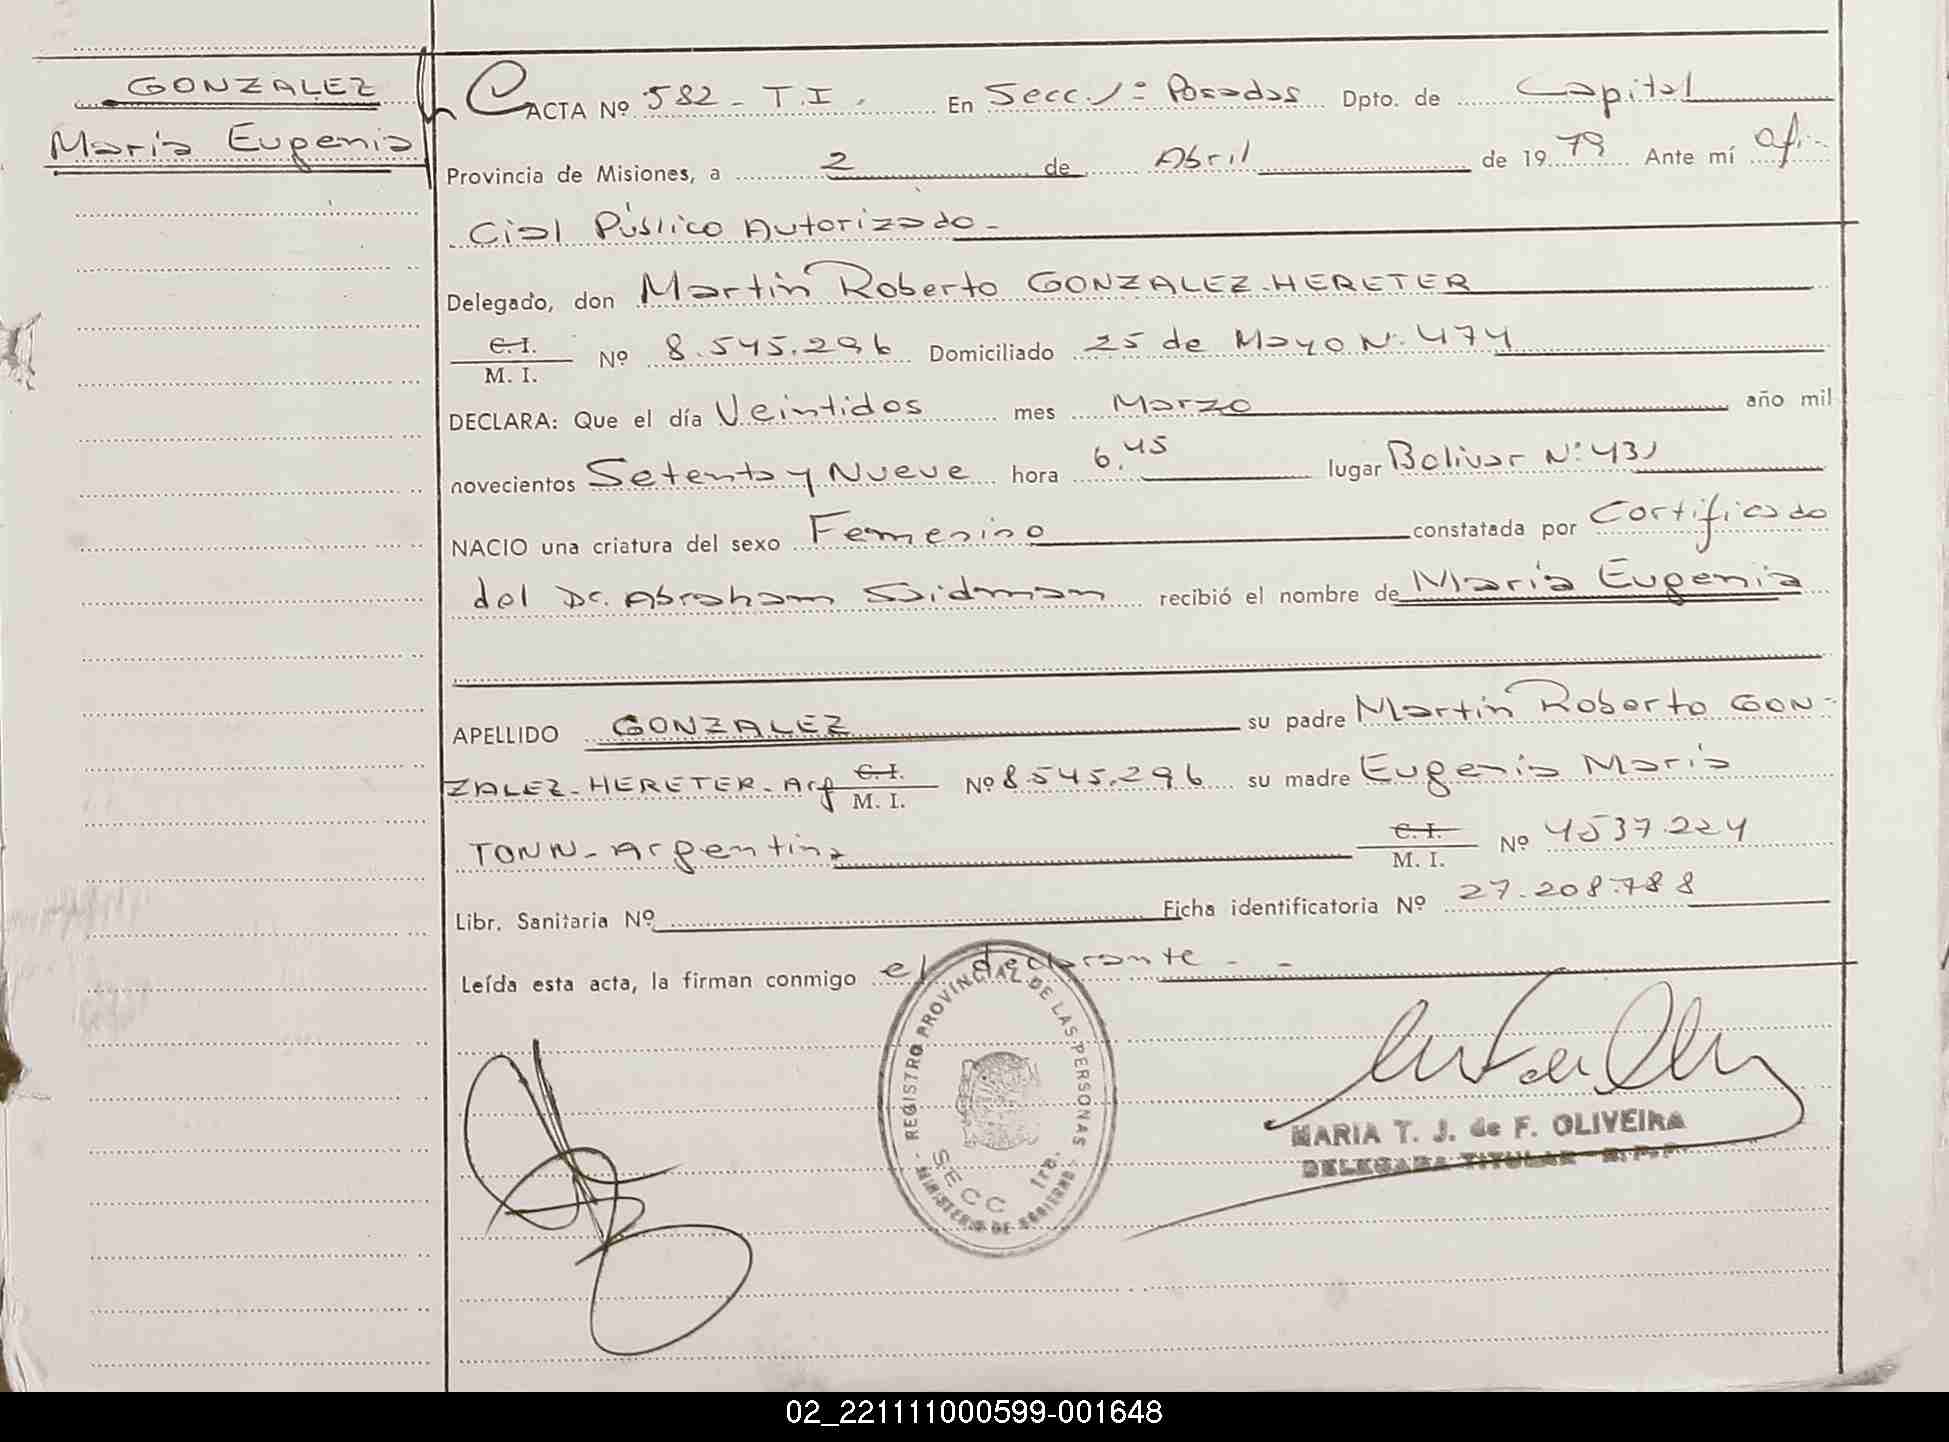 GONZALEZ
María Eugenia
ACTA Nº 582 - T.I. En Secc. 1ª Posadas Dpto. de Capital
Provincia de Misiones, a 2 de Abril de 1979 Ante mí ofi-
cial Público Autorizado -
Delegado, don Martin Roberto GONZALEZ-HERETER
C.I. / M. I. Nº 8.545.296 Domiciliado 25 de Mayo Nº 474
DECLARA: Que el día Veintidos mes Marzo año mil
novecientos Setenta y Nueve hora 6,45 lugar Bolivar Nº 431
NACIO una criatura del sexo Femenino constatada por Certificado
del Dr. Abraham Saidman recibió el nombre de María Eugenia
APELLIDO GONZALEZ su padre Martin Roberto GON-
ZALEZ-HERETER-Arg C.I. / M. I. Nº 8.545.296 su madre Eugenia María
TONN-Argentina C.I. / M. I. Nº 4537.224
Libr. Sanitaria Nº Ficha identificatoria Nº 27.208.788
Leída esta acta, la firman conmigo el declarante - -
REGISTRO PROVINCIAL DE LAS PERSONAS
SECC 1ra.
MINISTERIO DE GOBIERNO
MARIA T. J. de F. OLIVEIRA
DELEGADA TITULAR R.P.P.
02_221111000599-001648